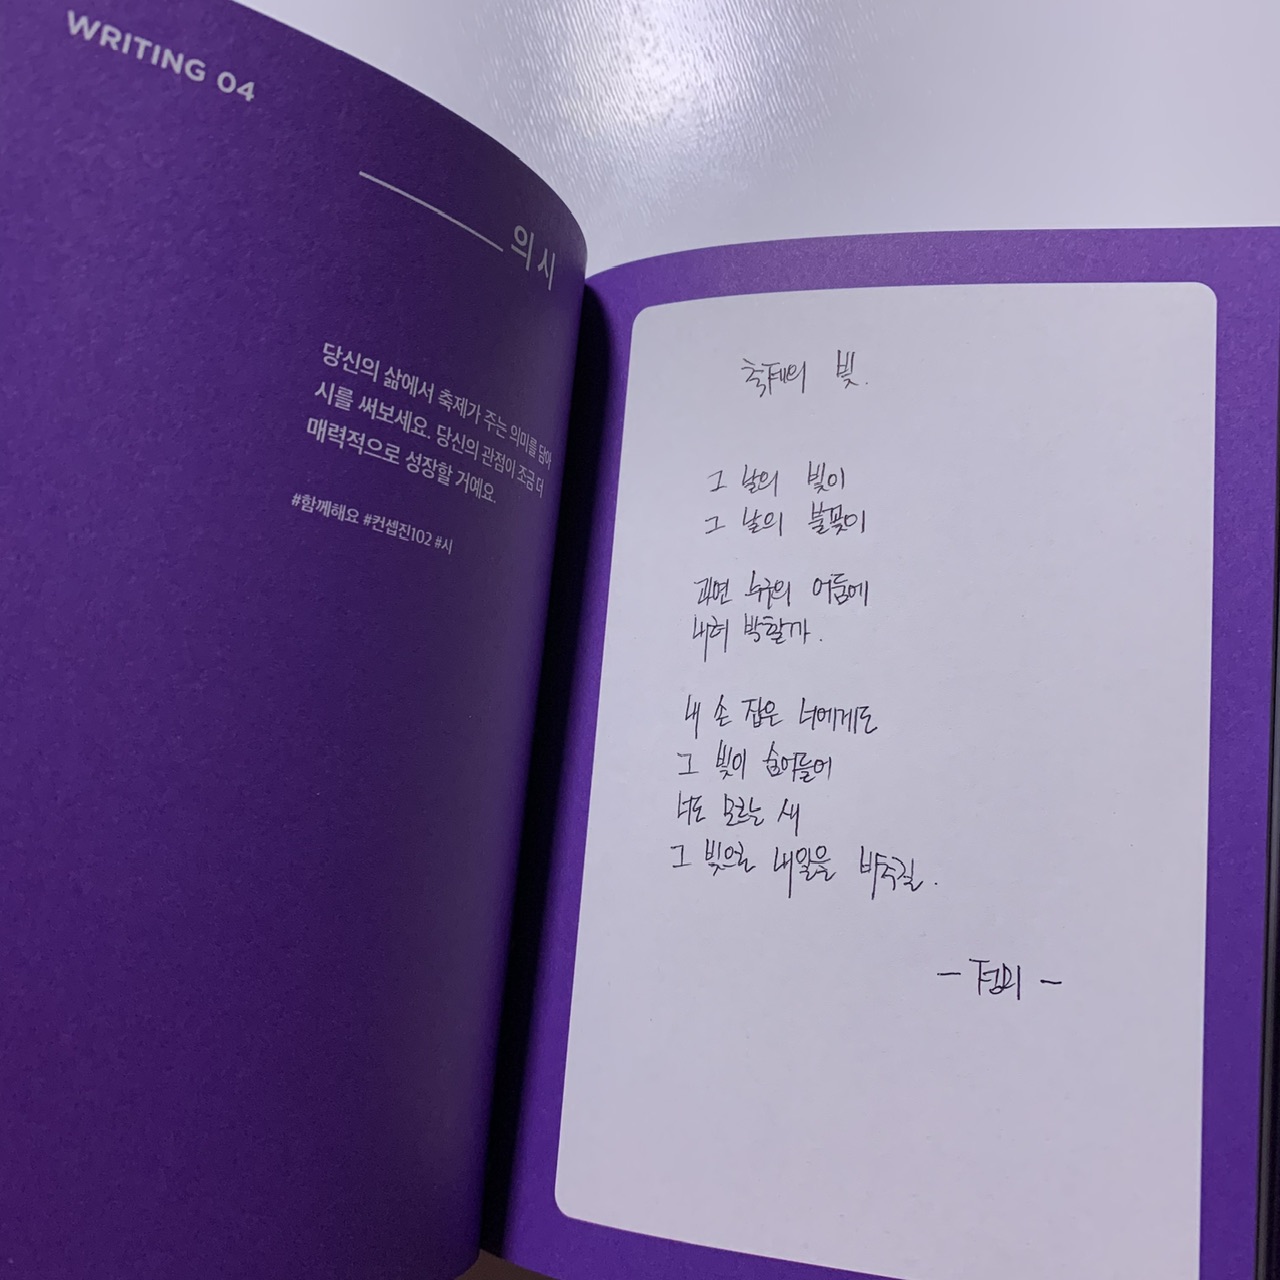 WRITING 04
의 시
당신의 삶에서 축제가 주는 의미를 담아
시를 써보세요. 당신의 관점이 조금 더
매력적으로 성장할 거예요.
#함께해요 #컨셉진102 #시
축제의 빛.
그 날의 빛이
그 날의 불꽃이
과연 누구의 어둠에
내려 박힐까.
내 손 잡은 너에게도
그 빛이 숨어들어
너도 모르는 새
그 빛으로 내일을 바꾸길.